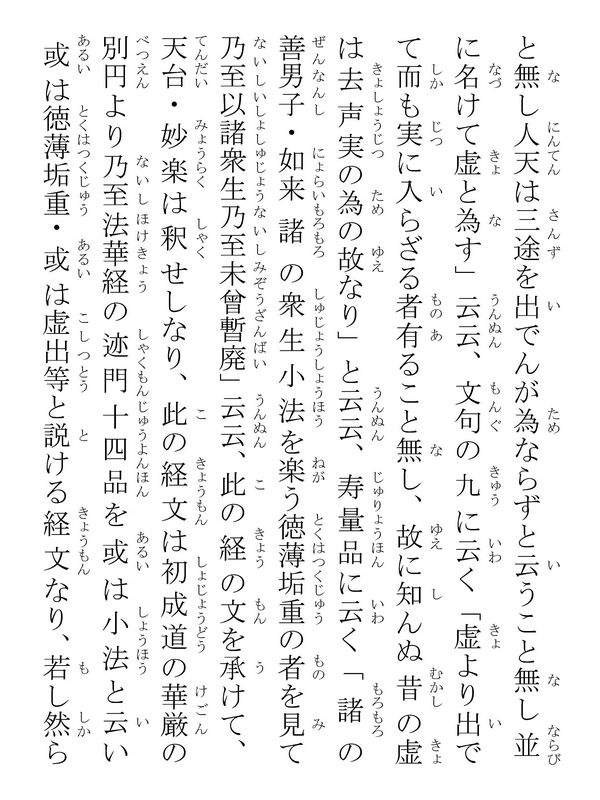 と無し人天は三途を出でんが為ならずと云うこと無し並
に名けて虚と為す」云云、文句の九に云く「虚より出で
て而も実に入らざる者有ること無し、故に知んぬ昔の虚
は去声実の為の故なり」と云云、寿量品に云く「諸の
善男子・如来諸の衆生小法を楽う徳薄垢重の者を見て
乃至以諸衆生乃至未曾暫廃」云云、此の経の文を承けて、
天台・妙楽は釈せしなり、此の経文は初成道の華厳の
別円より乃至法華経の迹門十四品を或は小法と云い
或は徳薄垢重・或は虚出等と説ける経文なり、若し然ら